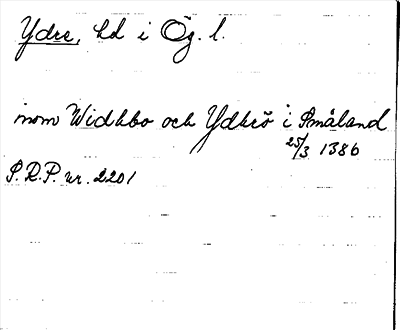 Ydre, hd i Ög. l.
inom Widhbo och Ydhrö i Småland
25/3 1386
S.R.P. nr. 2201